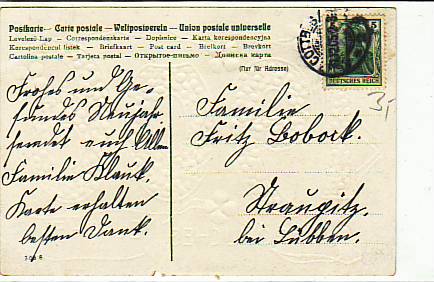 Postkarte — Carte postale — Weltpostverein — Union postale universelle
Levelező-Lap — Correspondenzkarte — Dopisnice — Karta korespondencyjna
Korespondenční lístek — Briefkaart — Post card — Brefkort — Brevkort
Cartolina postale — Tarjeta postal — Открытое письмо — Дописна карта
(Nur für Adresse)
5
DEUTSCHES REICH
COTTBUS
Frohes und Ge-
sundes Neujahr
sendet euch Allen
Familie Klauk.
Karte erhalten
besten Dank.
Familie
Fritz Bobock.
Straupitz,
bei Lübben.